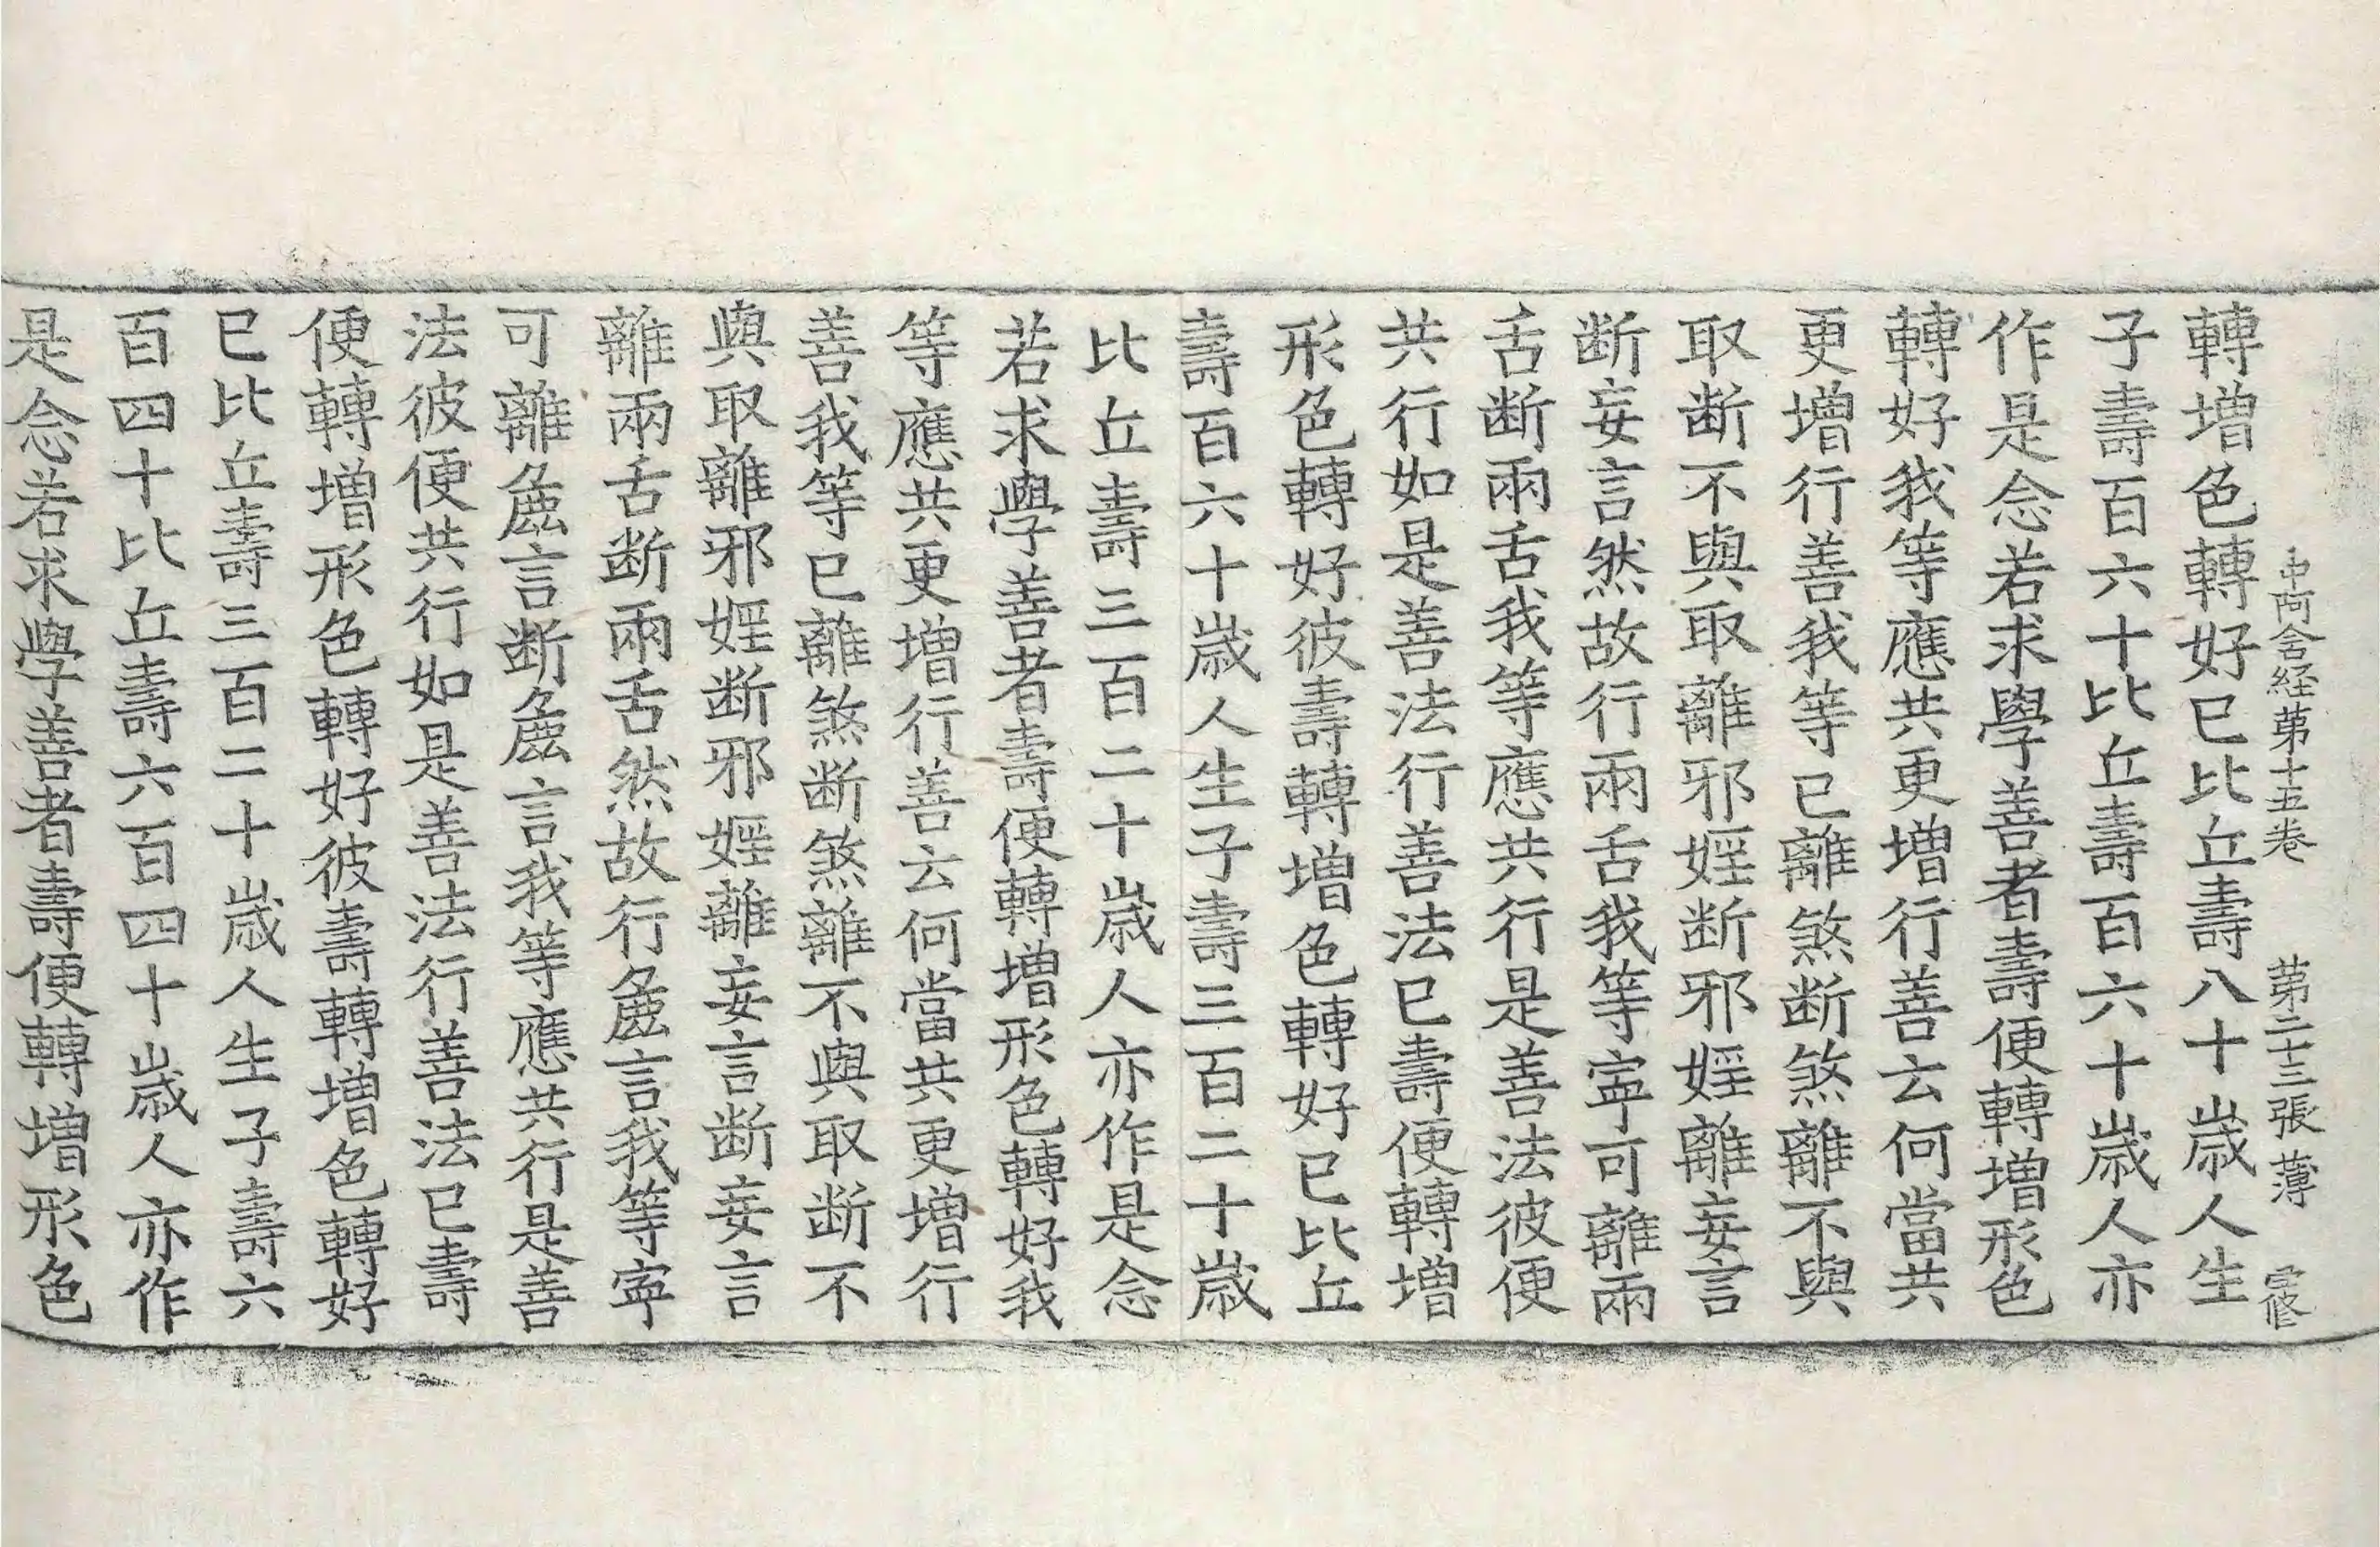 中阿含経苐十五卷　苐二十三張　薄
轉増色轉好已比丘壽八十歲人生
子壽百六十比丘壽百六十歲人亦
作是念若求學善者壽便轉增形色
轉好我等應共更增行善云何當共
更增行善我等已離煞断煞離不與
取断不與取離邪婬断邪婬離妄言
断妄言然故行兩舌我等寧可離兩
舌断兩舌我等應共行是善法彼便
共行如是善法行善法已壽便轉增
形色轉好彼壽轉增色轉好已比丘
壽百六十歲人生子壽三百二十歲
比丘壽三百二十歲人亦作是念
若求學善者壽便轉增形色轉好我
等應共更增行善云何當共更增行
善我等已離煞断煞離不與取断不
與取離邪婬断邪婬離妄言断妄言
離兩舌断兩舌然故行麁言我等寧
可離麁言断麁言我等應共行是善
法彼便共行如是善法行善法已壽
便轉增形色轉好彼壽轉增色轉好
已比丘壽三百二十歲人生子壽六
百四十比丘壽六百四十歲人亦作
是念若求學善者壽便轉增形色